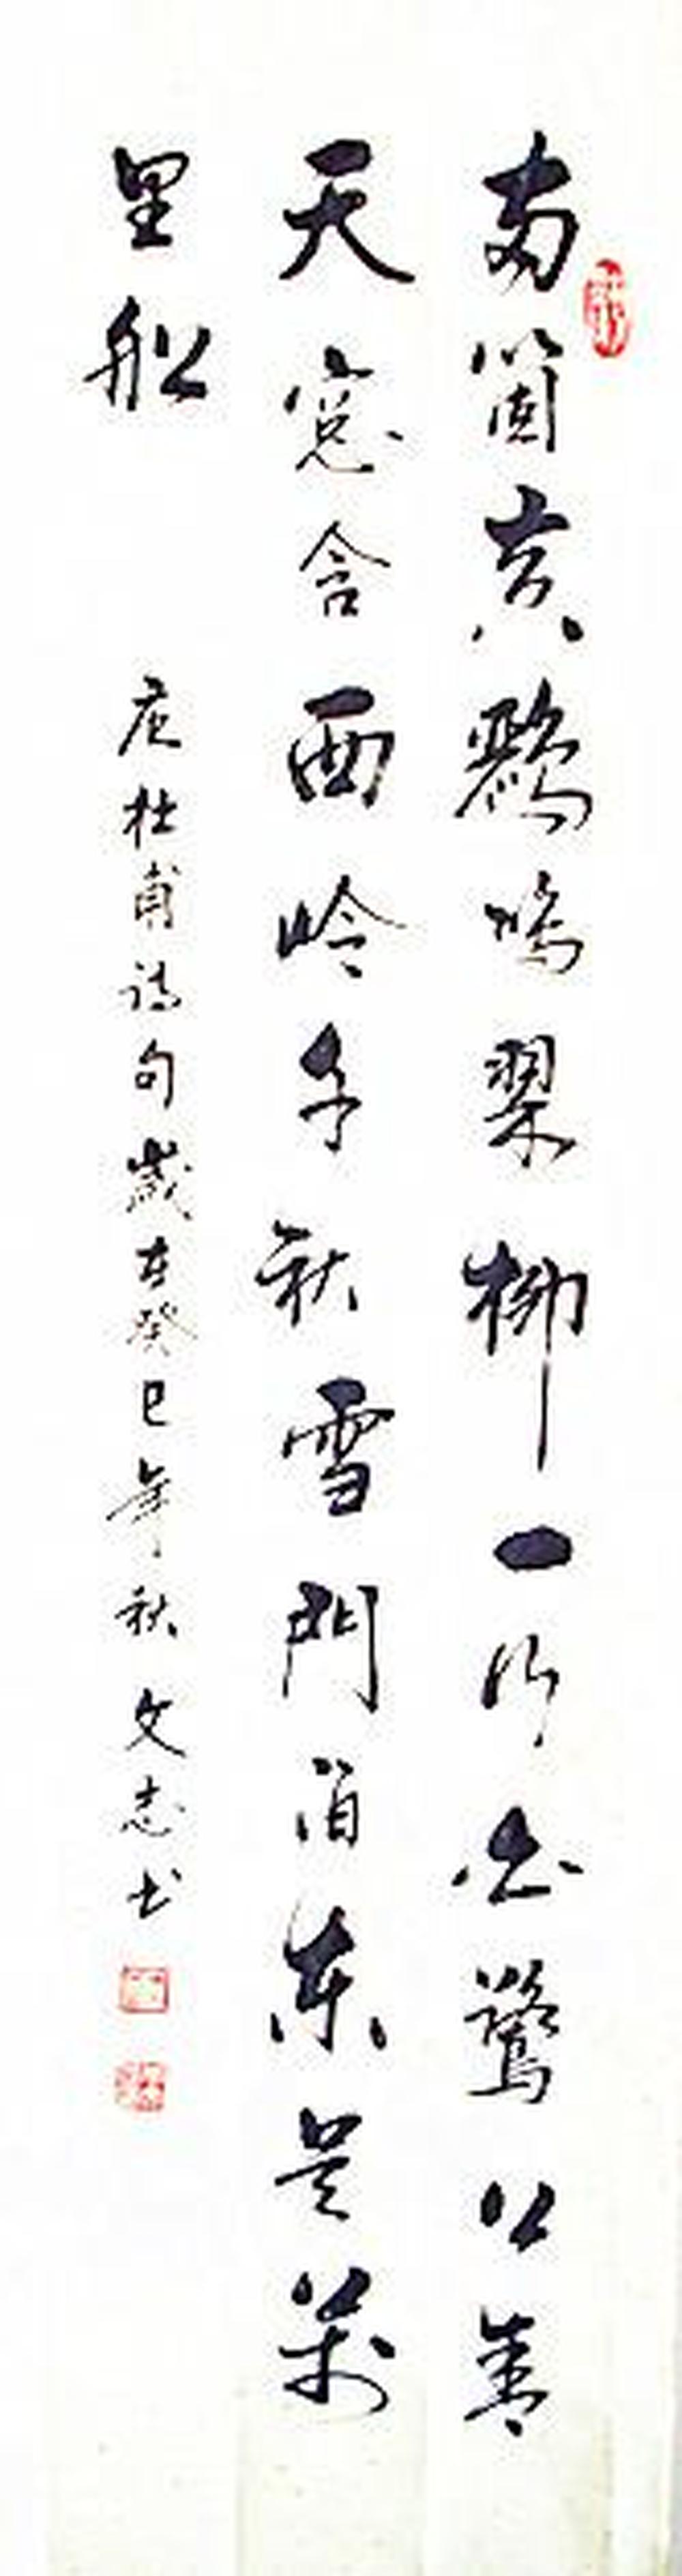 两箇黄鸝鳴翠柳一行白鷺上青
天窓含西岭千秋雪門泊东吴萬
里船
唐杜甫诗句歲在癸巳年秋文志书